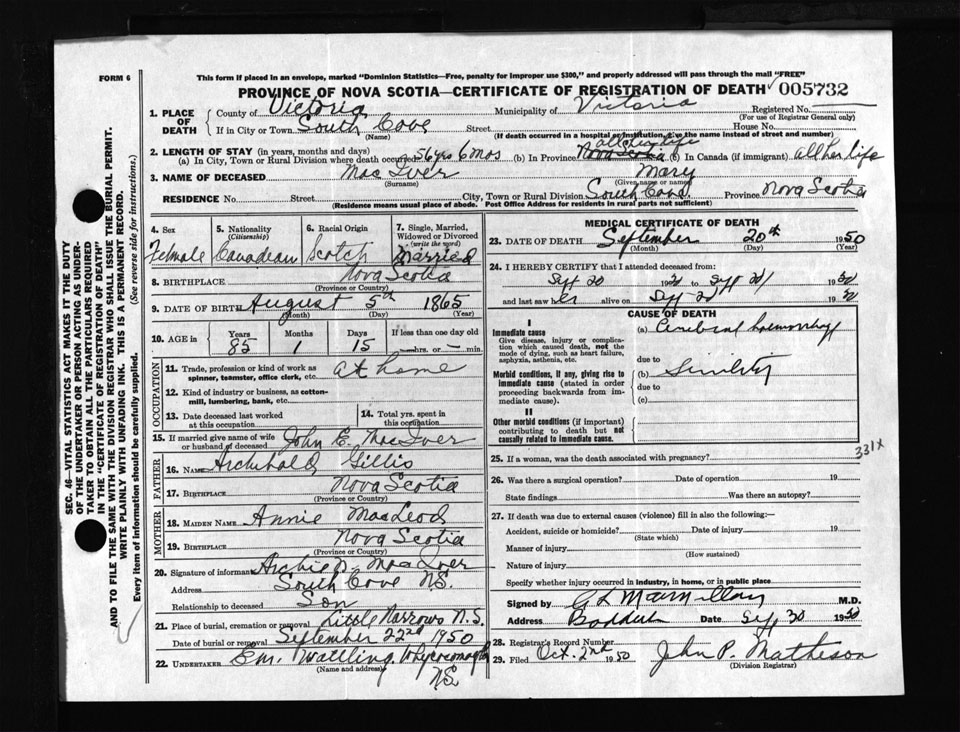 FORM 6
This form if placed in an envelope, marked "Dominion Statistics—Free, penalty for improper use $300," and properly addressed will pass through the mail "FREE"
PROVINCE OF NOVA SCOTIA—CERTIFICATE OF REGISTRATION OF DEATH 005732
1. PLACE OF DEATH County of Victoria Municipality of Victoria Registered No.
(For use of Registrar General only)
If in City or Town South Cove Street House No.
(Name) (If death occurred in a hospital or institution, give the name instead of street and number)
2. LENGTH OF STAY (in years, months and days) all her life
(a) In City, Town or Rural Division where death occurred 56 yrs 6 mos (b) In Province Nova Scotia (c) In Canada (if immigrant) all her life
3. NAME OF DECEASED MacIver Mary
(Surname) (Given name or names)
RESIDENCE No. Street City, Town or Rural Division South Cove Province Nova Scotia
(Residence means usual place of abode. Post Office Address for residents in rural parts not sufficient)
4. Sex 5. Nationality (Citizenship) 6. Racial Origin 7. Single, Married, Widowed or Divorced (write the word)
Female Canadian Scotch Married
8. BIRTHPLACE Nova Scotia
(Province or Country)
9. DATE OF BIRTH August 5th 1865
(Month) (Day) (Year)
10. AGE in Years Months Days If less than one day old
85 1 15 — hrs. or — min.
OCCUPATION
11. Trade, profession or kind of work as spinner, teamster, office clerk, etc. at home
12. Kind of industry or business, as cotton-mill, lumbering, bank, etc.
13. Date deceased last worked at this occupation
14. Total yrs. spent in this occupation
15. If married give name of wife or husband of deceased John E. MacIver
FATHER
16. NAME Archibald Gillis
17. BIRTHPLACE Nova Scotia
(Province or Country)
MOTHER
18. MAIDEN NAME Annie MacLeod
19. BIRTHPLACE Nova Scotia
(Province or Country)
20. Signature of informant Archie D. MacIver
Address South Cove N.S.
Relationship to deceased Son
21. Place of burial, cremation or removal Little Narrows N.S.
Date of burial or removal September 22nd 1950
22. UNDERTAKER Em. Watling, Whycocomagh
(Name and address) N.S.
MEDICAL CERTIFICATE OF DEATH
23. DATE OF DEATH September 20th 1950
(Month) (Day) (Year)
24. I HEREBY CERTIFY that I attended deceased from:
Sept 20 1950 to Sept 20 1950
and last saw her alive on Sept 20 1950
CAUSE OF DEATH
I
Immediate cause (a) Cerebral haemorrhage
Give disease, injury or complication which caused death, not the mode of dying, such as heart failure, asphyxia, asthenia, etc.
due to
Morbid conditions, if any, giving rise to immediate cause (stated in order proceeding backwards from immediate cause).
(b) Senility
due to
(c)
II
Other morbid conditions (if important) contributing to death but not causally related to immediate cause.
331X
25. If a woman, was the death associated with pregnancy?
26. Was there a surgical operation? Date of operation 19
State findings Was there an autopsy?
27. If death was due to external causes (violence) fill in also the following:—
Accident, suicide or homicide? Date of injury 19
(State which)
Manner of injury
(How sustained)
Nature of injury
Specify whether injury occurred in industry, in home, or in public place
Signed by G L MacMillan M.D.
Address Baddeck Date Sept 30 1950
28. Registrar's Record Number
29. Filed Oct. 2nd 1950 John P. Matheson
(Division Registrar)
SEC. 46—VITAL STATISTICS ACT MAKES IT THE DUTY
OF THE UNDERTAKER OR PERSON ACTING AS UNDER-
TAKER TO OBTAIN ALL THE PARTICULARS REQUIRED
IN THE "CERTIFICATE OF REGISTRATION OF DEATH"
AND TO FILE THE SAME WITH THE DIVISION REGISTRAR WHO SHALL ISSUE THE BURIAL PERMIT.
WRITE PLAINLY WITH UNFADING INK. THIS IS A PERMANENT RECORD.
Every item of information should be carefully supplied. (See reverse side for instructions.)